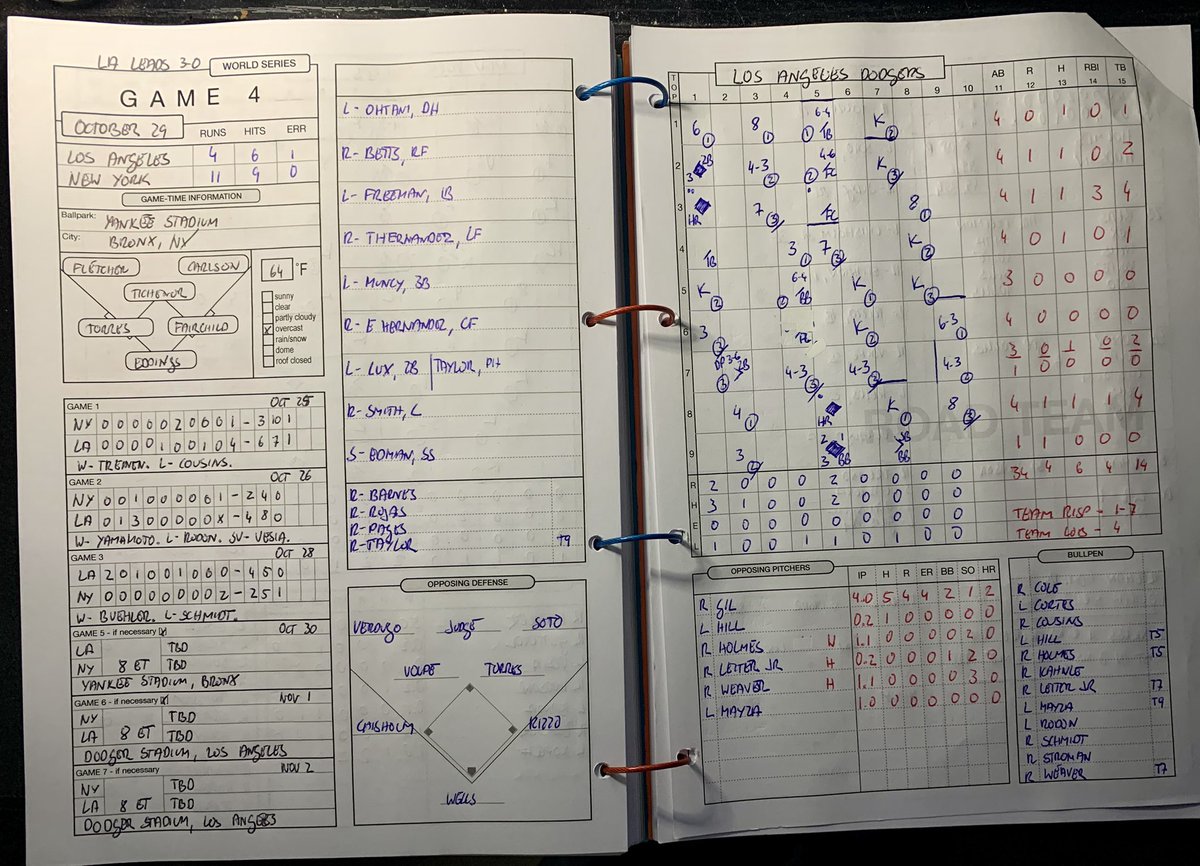 LA LEADS 3-0 WORLD SERIES
GAME 4
OCTOBER 29 RUNS HITS ERR
LOS ANGELES 4 6 1
NEW YORK 11 9 0
GAME-TIME INFORMATION
Ballpark: YANKEE STADIUM
City: BRONX, NY
FLETCHER CARLSON 64 °F
TICHENOR
TORRES FAIRCHILD
EDDINGS
sunny
clear
partly cloudy
overcast
rain/snow
dome
roof closed
GAME 1 OCT 25
NY 0 0 0 0 0 2 0 0 0 1 - 3 10 1
LA 0 0 0 0 1 0 0 1 0 4 - 6 7 1
W- TREINEN. L- COUSINS.
GAME 2 OCT 26
NY 0 0 1 0 0 0 0 0 1 - 2 4 0
LA 0 1 3 0 0 0 0 0 X - 4 8 0
W- YAMAMOTO. L- RODON. SV- VESIA.
GAME 3 OCT 28
LA 2 0 1 0 0 1 0 0 0 - 4 5 0
NY 0 0 0 0 0 0 0 0 2 - 2 5 1
W- BUEHLER. L- SCHMIDT.
GAME 5 - if necessary OCT 30
LA TBD
NY 8 ET TBD
YANKEE STADIUM, BRONX
GAME 6 - if necessary NOV 1
NY TBD
LA 8 ET TBD
DODGER STADIUM, LOS ANGELES
GAME 7 - if necessary NOV 2
NY TBD
LA 8 ET TBD
DODGER STADIUM, LOS ANGELES
L- OHTANI, DH
R- BETTS, RF
L- FREEMAN, 1B
R- T HERNANDEZ, LF
L- MUNCY, 3B
R- E HERNANDEZ, CF
L- LUX, 2B TAYLOR, PH
R- SMITH, C
S- EDMAN, SS
R- BARNES
R- ROJAS
R- PAGES
R- TAYLOR T9
OPPOSING DEFENSE
VERDUGO JUDGE SOTO
VOLPE TORRES
CHISHOLM RIZZO
WELLS
LOS ANGELES DODGERS
TOP 1 2 3 4 5 6 7 8 9 10 AB R H RBI TB
11 12 13 14 15
1 6 1 8 1 6-4 1 1B K 2 4 0 1 0 1
2 2B 3 4-3 2 4-6 2 FC K 3 4 1 1 0 2
3 HR 7 3 FC 8 1 4 1 1 3 4
4 1B 3 1 7 3 K 2 4 0 1 0 1
5 K 2 6-4 BB K 1 K 3 3 0 0 0 0
6 3 2 FC K 2 6-3 1 4 0 0 0 0
7 DP 3-6 2B 3 4-3 3 4-3 2 4-3 2 3 0 1 0 2
1 0 0 0 0
8 4 1 HR K 1 8 3 4 1 1 1 4
9 3 2 BB SB BB 1 1 0 0 0
ROAD TEAM
R 2 0 0 0 2 0 0 0 0 34 4 6 4 14
H 3 1 0 0 2 0 0 0 0
E 0 0 0 0 0 0 0 0 0 TEAM RISP - 1-7
L 1 0 0 1 1 0 1 0 0 TEAM LOB - 4
OPPOSING PITCHERS IP H R ER BB SO HR
R GIL 4.0 5 4 4 2 1 2
L HILL 0.2 1 0 0 0 0 0
R HOLMES W 1.1 0 0 0 0 2 0
R LEITER JR H 0.2 0 0 0 1 2 0
R WEAVER H 1.1 0 0 0 0 3 0
L MAYZA 1.0 0 0 0 0 0 0
BULLPEN
R COLE
L CORTES
R COUSINS
L HILL T5
R HOLMES T5
R KAHNLE
R LEITER JR T7
L MAYZA T9
L RODON
R SCHMIDT
R STROMAN
R WEAVER T7